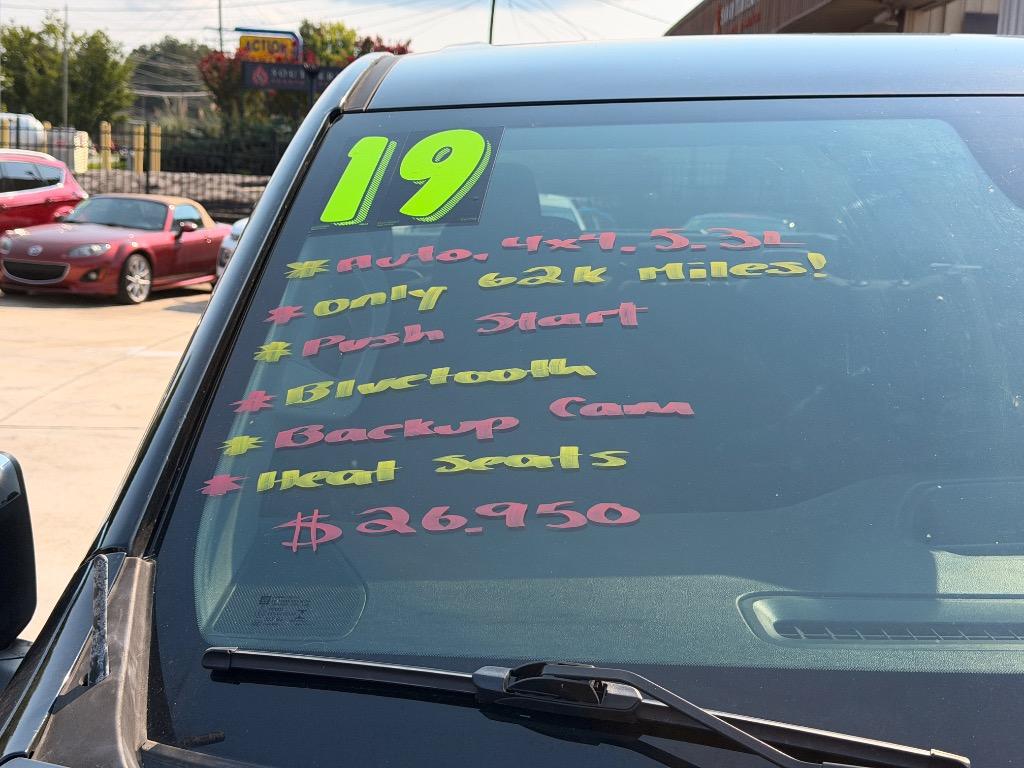 ACTION
19
* Auto, 4x4, 5.3L
* Only 62k Miles!
* Push Start
* Bluetooth
* Backup Cam
* Heat Seats
$26,950